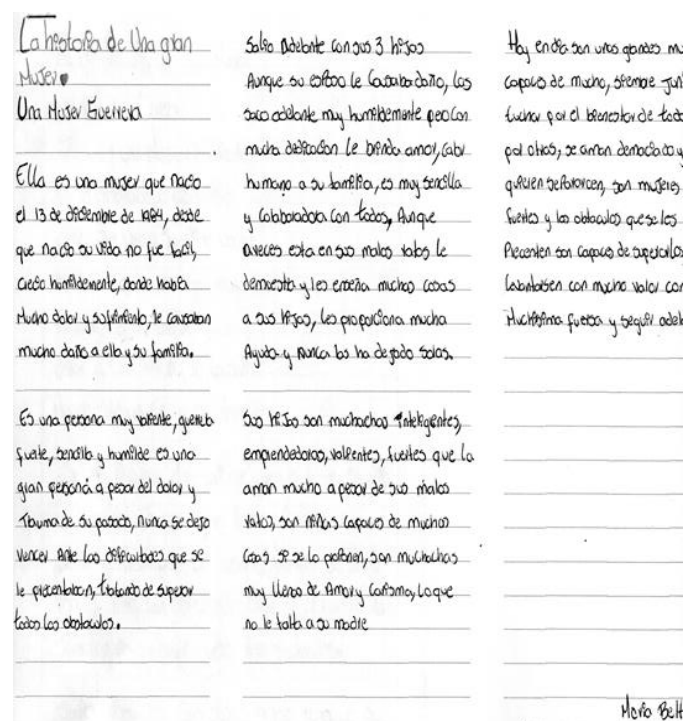 La historia de Una gran
Mujer
Una Mujer Guerrera
Ella es una mujer que nacio
el 13 de diciembre de 1984, desde
que nacio su vida no fue facil,
crecio humildemente, donde habia
Mucho dolor y sufrimiento, le causaban
mucho daño a ella y su familia.
Es una persona muy valiente, guerrera
fuerte, sencilla y humilde es una
gran persona a pesar del dolor y
Trauma de su pasado, nunca se dejo
vencer Ante las dificultades que se
le presentaban, tratando de superar
todos los obstaculos.
Salio Adelante con sus 3 hijos
Aunque su esposo le Causaba daño, los
saco adelante muy humildemente pero con
mucha dedicacion le brinda amor, calor
humano a su familia, es muy sencilla
y Colaboradora con todos, Aunque
aveces esta en sus malos ratos le
demuestra y les enseña muchas cosas
a sus hijos, les proporciona mucha
Ayuda y nunca los ha dejado solas.
Sus hijos son muchachas inteligentes,
emprendedoras, valientes, fuertes que la
aman mucho a pesar de sus malos
ratos, son niñas capaces de muchas
cosas si se lo proponen, son muchachas
muy llenas de Amor y Carisma, lo que
no le falta a su madre
Hoy en dia son unas grandes
capaces de mucho, siempre
luchar por el bienestar de
por otros, se aman demaciado y
quieren son mujeres
fuertes y los obtaculos que se les
Precenten son capaces de superarlos
levantarsen con mucho valor con
Muchisima fuersa y seguir
Maria